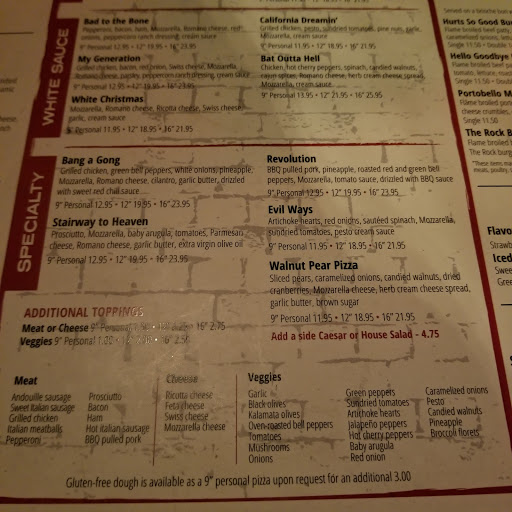 WHITE SAUCE
Bad to the Bone
Pepperoni, bacon, ham, Mozzarella, Romano cheese, red
onions, peppercorn ranch dressing, cream sauce
9" Personal 12.95 • 12" 19.95 • 16" 23.95
My Generation
Grilled chicken, bacon, red onion, Swiss cheese, Mozzarella,
Romano cheese, parsley, peppercorn ranch dressing, cream sauce
9" Personal 12.95 • 12" 19.95 • 16" 23.95
White Christmas
Mozzarella, Romano cheese, Ricotta cheese, Swiss cheese,
garlic, cream sauce
9" Personal 11.95 • 12" 18.95 • 16" 21.95
California Dreamin'
Grilled chicken, pesto, sundried tomatoes, pine nuts, garlic,
Mozzarella, cream sauce
9" Personal 11.95 • 12" 18.95 • 16" 21.95
Bat Outta Hell
Chicken, hot cherry peppers, spinach, candied walnuts,
cajun spices, Romano cheese, herb cream cheese spread,
Mozzarella, cream sauce
9" Personal 13.95 • 12" 21.95 • 16" 25.95
SPECIALTY
Bang a Gong
Grilled chicken, green bell peppers, white onions, pineapple,
Mozzarella, Romano cheese, cilantro, garlic butter, drizzled
with sweet red chili sauce
9" Personal 12.95 • 12" 19.95 • 16" 23.95
Stairway to Heaven
Prosciutto, Mozzarella, baby arugula, tomatoes, Parmesan
cheese, Romano cheese, garlic butter, extra virgin olive oil
9" Personal 12.95 • 12" 19.95 • 16" 23.95
Revolution
BBQ pulled pork, pineapple, roasted red and green bell
peppers, Mozzarella, tomato sauce, drizzled with BBQ sauce
9" Personal 12.95 • 12" 19.95 • 16" 23.95
Evil Ways
Artichoke hearts, red onions, sautéed spinach, Mozzarella,
sundried tomatoes, pesto cream sauce
9" Personal 11.95 • 12" 18.95 • 16" 21.95
Walnut Pear Pizza
Sliced pears, caramelized onions, candied walnuts, dried
cranberries, Mozzarella cheese, herb cream cheese spread,
garlic butter, brown sugar
9" Personal 11.95 • 12" 18.95 • 16" 21.95
Add a side Caesar or House Salad - 4.75
ADDITIONAL TOPPINGS
Meat or Cheese 9" Personal 12" 16" 2.75
Veggies 9" Personal 12" 16" 2.50
Meat
Andouille sausage
Sweet Italian sausage
Grilled chicken
Italian meatballs
Pepperoni
Prosciutto
Bacon
Ham
Hot italian sausage
BBQ pulled pork
Cheese
Ricotta cheese
Feta cheese
Swiss cheese
Mozzarella cheese
Veggies
Garlic
Black olives
Kalamata olives
Oven-roasted bell peppers
Tomatoes
Mushrooms
Onions
Green peppers
Sundried tomatoes
Artichoke hearts
Jalapeño peppers
Hot cherry peppers
Baby arugula
Red onion
Caramelized onions
Pesto
Candied walnuts
Pineapple
Broccoli florets
Gluten-free dough is available as a 9" personal pizza upon request for an additional 3.00
Served on a brioche
Hurts So Good Bu
Flame broiled beef patty,
caramelized onions,
Single 11.50 • Double
Hello Goodbye
tomato, lettuce,
Single 11.50 • Double
Portobello M
Flame broiled
cheese crumbles,
Single 11.50
The Rock B
Flame broiled
The Rock burg
meats, poultry,
Flavo
Strawb
Iced
Swee
Gree